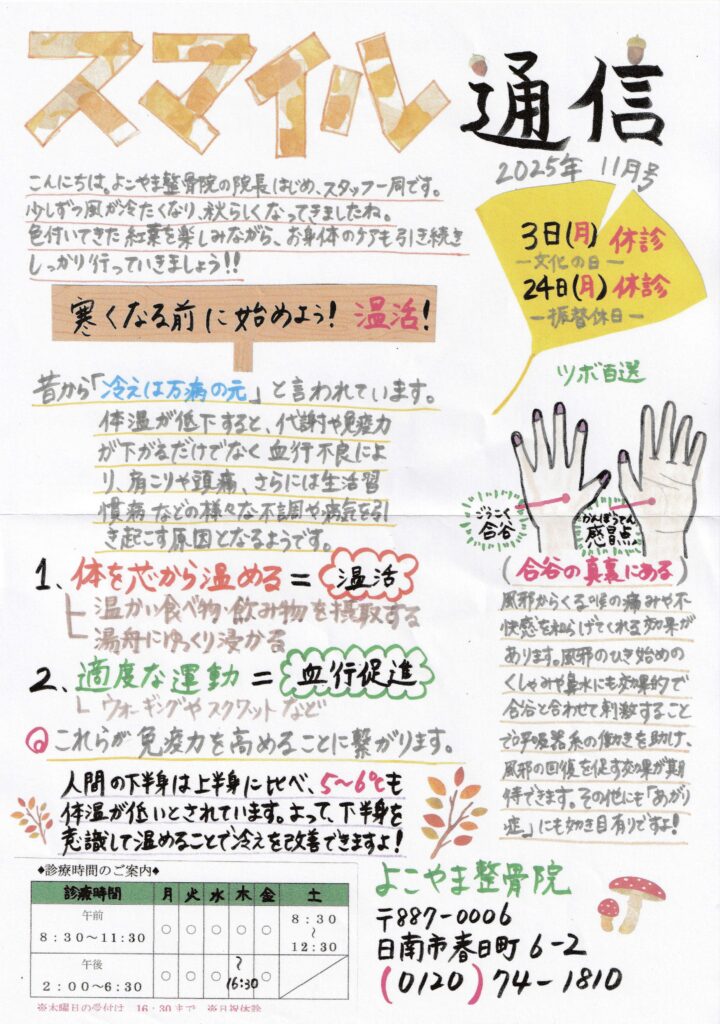 スマイル通信
2025年 11月号
こんにちは。よこやま整骨院の院長はじめ、スタッフ一同です。
少しずつ風が冷たくなり、秋らしくなってきましたね。
色付いてきた紅葉を楽しみながら、お身体のケアも引き続き
しっかり行っていきましょう!!
3日(月) 休診
ー文化の日ー
24日(月) 休診
ー振替休日ー
寒くなる前に始めよう! 温活!
昔から「冷えは万病の元」と言われています。
体温が低下すると、代謝や免疫力
が下がるだけでなく血行不良によ
り、肩こりや頭痛、さらには生活習
慣病などの様々な不調や病気を引
き起こす原因となるようです。
1、体を芯から温める = 温活
温かい食べ物・飲み物を摂取する
湯舟にゆっくり浸かる
2、適度な運動 = 血行促進
ウォーキングやスクワットなど
これらが免疫力を高めることに繋がります。
人間の下半身は上半身に比べ、5〜6℃も
体温が低いとされています。よって、下半身を
意識して温めることで冷えを改善できますよ!
ツボ百選
ごうこく
合谷
かんぼうてん
感冒点
(合谷の真裏にある)
風邪からくる喉の痛みや不
快感を和らげてくれる効果が
あります。風邪のひき始めの
くしゃみや鼻水にも効果的で
合谷と合わせて刺激すること
で呼吸器系の働きを助け、
風邪の回復を促す効果が期
待できます。その他にも「あがり
症」にも効き目有りですよ!
◆診療時間のご案内◆
診療時間 月 火 水 木 金 土
午前 8:30〜11:30 ○ ○ ○ ○ ○ 8:30〜12:30
午後 2:00〜6:30 ○ ○ ○ 〜16:30 ○
※木曜日の受付は 16:30まで ※日祝休診
よこやま整骨院
〒887-0006
日南市春日町6-2
(0120)74-1810